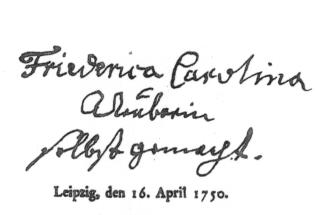 Friederica Carolina
Neuberin
selbst gemacht.
Leipzig, den 16. April 1750.